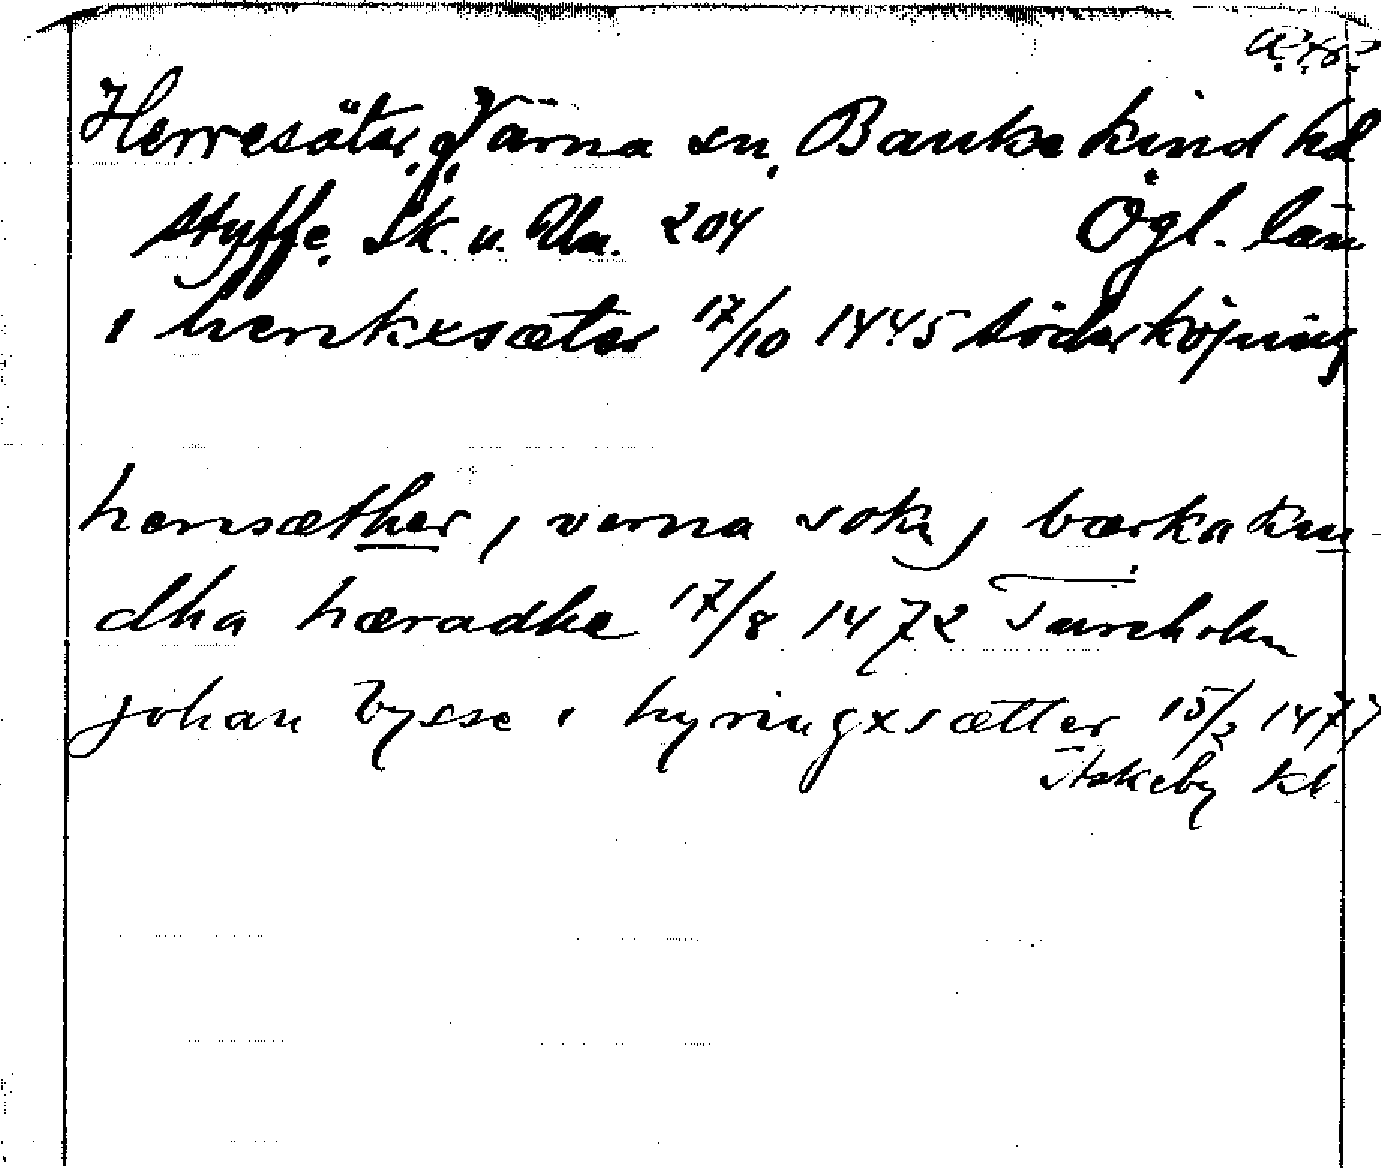 Herresäter, Värna sn, Bankekind hd
Styffe, Sk. u. Un. 204 Ögl. län
i herikxsæter 17/10 1445 Söderköping
hersæther, i værna sokn, i bærkakin
dha hæradhe 17/8 1472
johan bysse i hyringxsætter 15/2 1477
Askeby kl